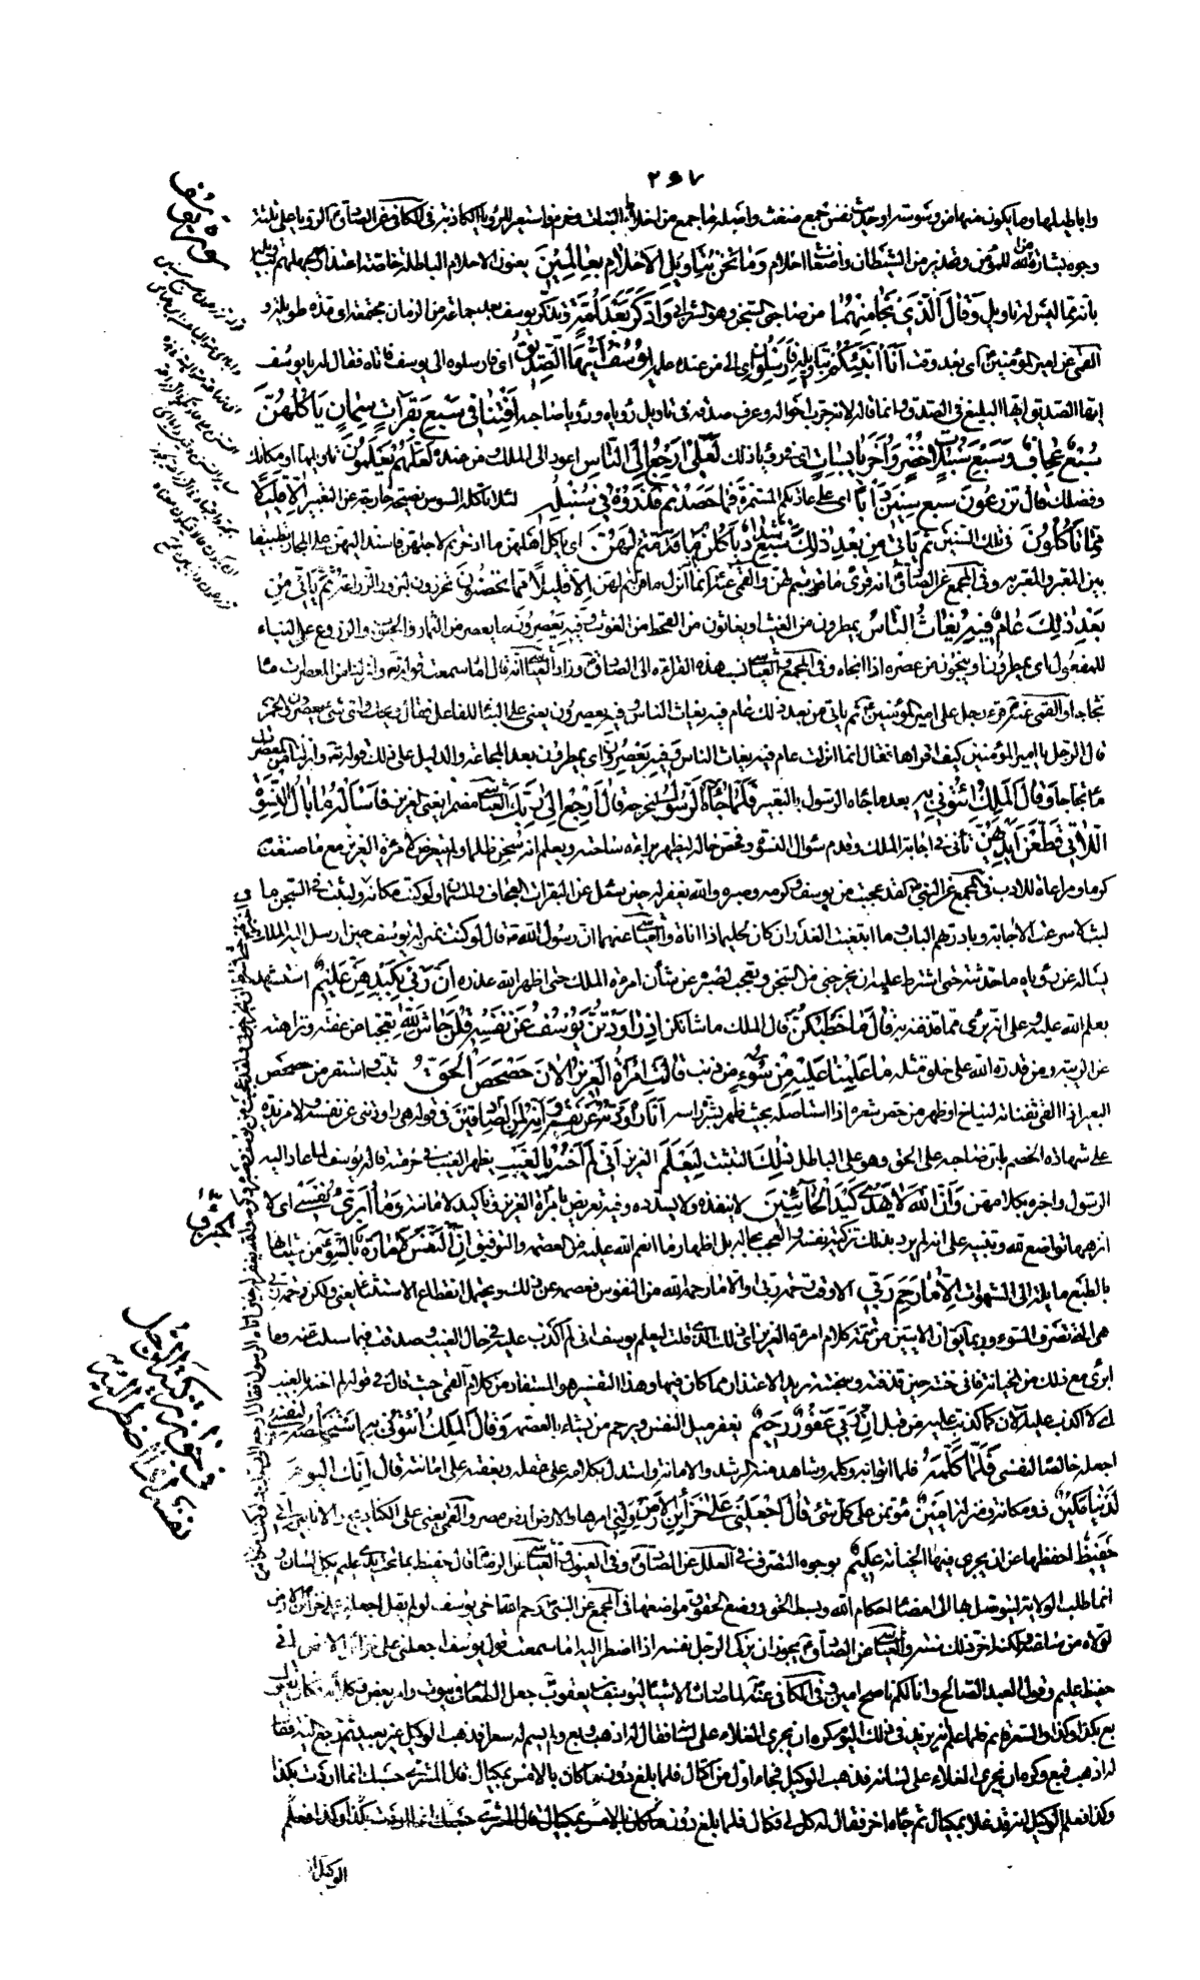 ٢٦٧
واباطيلها وما يكون منها من وسوسة او حديث نفس جمع ضغث واصله ما جمع من اخلاط النبات وحزم فاستعير للرؤيا الكاذبة في الكافي عن الصادق الرؤيا على ثلثة
وجوه بشارة من الله للمؤمن وتحذير من الشيطان واضغاث احلام وَمَا نَحْنُ بِتَأْوِيلِ الْأَحْلَامِ بِعَالِمِينَ يعنون الاحلام الباطلة خاصة اعتذار لجهلهم بتاويله
بانه مما ليس له تاويل وَقَالَ الَّذِي نَجَا مِنْهُمَا من صاحبي السجن وهو الشرابي وَادَّكَرَ بَعْدَ أُمَّةٍ وتذكر يوسف بعد جماعة من الزمان مجتمعة اي مدة طويلة و
القمي عن امير المؤمنين اي بعد وقت أَنَا أُنَبِّئُكُمْ بِتَأْوِيلِهِ فَأَرْسِلُونِ اي الى من عنده علمه يُوسُفُ أَيُّهَا الصِّدِّيقُ اي فارسلوه الى يوسف فاتاه فقال له يا يوسف
ايها الصديق ايها البليغ في الصدق وانما قاله لانه جرب احواله وعرف صدقه في تاويل رؤياه ورؤيا صاحبه أَفْتِنَا فِي سَبْعِ بَقَرَاتٍ سِمَانٍ يَأْكُلُهُنَّ
سَبْعٌ عِجَافٌ وَسَبْعِ سُنْبُلَاتٍ خُضْرٍ وَأُخَرَ يَابِسَاتٍ اي في رؤيا ذلك لَعَلِّي أَرْجِعُ إِلَى النَّاسِ اعود الى الملك ومن عنده لَعَلَّهُمْ يَعْلَمُونَ تاويلها او مكانك
وفضلك قال تَزْرَعُونَ سَبْعَ سِنِينَ دَأَبًا اي على عادتكم المستمرة فَمَا حَصَدْتُمْ فَذَرُوهُ فِي سُنْبُلِهِ لئلا ياكله السوس نصيحة خارجة عن التعبير إِلَّا قَلِيلًا
مِمَّا تَأْكُلُونَ في تلك السنين ثُمَّ يَأْتِي مِنْ بَعْدِ ذَلِكَ سَبْعٌ شِدَادٌ يَأْكُلْنَ مَا قَدَّمْتُمْ لَهُنَّ اي ياكل اهلهن ما ادخرتم لاجلهن فاسند اليهن على المجاز تطبيقا
بين المعبر والمعبر به وفي المجمع عن الصادق انه قرئ ما قربتم لهن والقمي عنه انما انزل ما قربتم لهن إِلَّا قَلِيلًا مِمَّا تُحْصِنُونَ تحرزون لبزور الزراعة ثُمَّ يَأْتِي مِنْ
بَعْدِ ذَلِكَ عَامٌ فِيهِ يُغَاثُ النَّاسُ يمطرون من الغيث او يغاثون من القحط من الغوث وَفِيهِ يَعْصِرُونَ ما يعصر من الثمار والحبوب والزروع على البناء
للمفعول اي يمطرون او ينجون من عصره اذا انجاه وفي المجمع والعياشي نسب هذه القراءة الى الصادق وزاد العياشي انه قال اما سمعت قوله تعالى وانزلنا من المعصرات ماء
ثجاجا والقمي عنه قرء رجل على امير المؤمنين ثم ياتي من بعد ذلك عام فيه يغاث الناس وفيه يعصرون يعني على البناء للفاعل فقال ويحك واي شئ يعصرون الخمر
قال الرجل يا امير المؤمنين كيف اقراها فقال انما انزلت عام فيه يغاث الناس وفيه يعصرون اي يمطرون بعد المجاعة والدليل على ذلك قوله وانزلنا من المعصرات
ماء ثجاجا وَقَالَ الْمَلِكُ ائْتُونِي بِهِ بعد ما جاءه الرسول بالتعبير فَلَمَّا جَاءَهُ الرَّسُولُ ليخرجه قَالَ ارْجِعْ إِلَى رَبِّكَ العياشي يعني العزيز فَاسْأَلْهُ مَا بَالُ النِّسْوَةِ
اللَّاتِي قَطَّعْنَ أَيْدِيَهُنَّ تانى في اجابة الملك وقدم سؤال النسوة وفحص حاله ليظهر براءة ساحته ويعلم انه سجن ظلما ولم يتعرض لامرأة العزيز مع ما صنعت
كرما ومراعاة للادب في المجمع عن النبي لقد عجبت من يوسف وكرمه وصبره والله يغفر له حين سئل عن البقرات العجاف والسمان ولو كنت مكانه ولبثت في السجن ما
لبث لاسرعت الاجابة وبادرتهم الباب وما ابتغيت العذر ان كان لحليما ذا اناة والعياشي عنهما ان رسول الله قال لو كنت بمنزلة يوسف حين ارسل اليه الملك
يسأله عن رؤياه ما حدثته حتى اشترط عليه ان يخرجني من السجن وتعجبت لصبره عن شأن امرأة الملك حتى اظهر الله عذره إِنَّ رَبِّي بِكَيْدِهِنَّ عَلِيمٌ استشهد
بعلم الله عليه وعلى انه برئ مما قذف به قَالَ مَا خَطْبُكُنَّ قال الملك ما شانكن إِذْ رَاوَدْتُنَّ يُوسُفَ عَنْ نَفْسِهِ قُلْنَ حَاشَ لِلَّهِ تعجبا من عفته ونزاهته
عن الريبة ومن قدرة الله على خلق مثله مَا عَلِمْنَا عَلَيْهِ مِنْ سُوءٍ من ذنب قَالَتِ امْرَأَةُ الْعَزِيزِ الْآنَ حَصْحَصَ الْحَقُّ ثبت واستقر من حصحص
البعير اذا القى ثفناته ليناخ او ظهر من حص شعره اذا استاصله بحيث ظهر بشرة راسه أَنَا رَاوَدْتُهُ عَنْ نَفْسِهِ وَإِنَّهُ لَمِنَ الصَّادِقِينَ في قوله هي راودتني عن نفسي ولا مزيد
على شهادة الخصم بان صاحبه على الحق وهو على الباطل ذَلِكَ التثبت لِيَعْلَمَ العزيز أَنِّي لَمْ أَخُنْهُ بِالْغَيْبِ بظهر الغيب في حرمته قاله يوسف لما عاد اليه
الرسول واخبره بكلامهن وَأَنَّ اللَّهَ لَا يَهْدِي كَيْدَ الْخَائِنِينَ لا ينفذه ولا يسدده وفيه تعريض بامرأة العزيز وتاكيد لامانته وَمَا أُبَرِّئُ نَفْسِي اي لا
انزهها تواضع لله وتنبيه على انه لم يرد بذلك تزكية نفسه والعجب بحاله بل اظهار ما انعم الله عليه من العصمة والتوفيق إِنَّ النَّفْسَ لَأَمَّارَةٌ بِالسُّوءِ من شانها
بالطبع مايلة الى الشهوات إِلَّا مَا رَحِمَ رَبِّي الا وقت رحمة ربي والا ما رحم الله من النفوس فعصمه عن ذلك ويحتمل انقطاع الاستثناء يعني ولكن رحمة ربي
هي التي تصرف السوء وربما يق ان الايتين من تتمة كلام امرأة العزيز اي ذلك الذي قلت ليعلم يوسف اني لم اكذب عليه في حال الغيب وصدقت فيما سئلت عنه وما
ابرئ مع ذلك من الخيانة فاني خنته حين قذفته وسجنته تريد الاعتذار مما كان فيها وهذا التفسير هو المستفاد من كلام القمي حيث قال في قوله لم اخنه بالغيب
اي لا اكذب عليه الان كما كذبت عليه من قبل إِنَّ رَبِّي غَفُورٌ رَحِيمٌ يغفر ميل النفس ويرحم من يشاء بالعصمة وَقَالَ الْمَلِكُ ائْتُونِي بِهِ أَسْتَخْلِصْهُ لِنَفْسِي
اجعله خالصا لنفسي فَلَمَّا كَلَّمَهُ فلما اتوا به وكلمه وشاهد منه الرشد والامانة واستدل بكلامه على عقله وبعفته على امانته قَالَ إِنَّكَ الْيَوْمَ
لَدَيْنَا مَكِينٌ ذو مكانة ومنزلة أَمِينٌ مؤتمن على كل شئ قَالَ اجْعَلْنِي عَلَى خَزَائِنِ الْأَرْضِ ولني امرها والارض ارض مصر والقمي يعني على الكناديج والانابير إِنِّي
حَفِيظٌ احفظها عن ان يجري فيها الخيانة عَلِيمٌ بوجوه التصرف في العلل عن الصادق وفي العيون والعياشي عن الرضا قال حفيظ بما تحت يدي عليم بكل لسان و
انما طلب الولاية ليتوصل بها الى امضاء احكام الله وبسط الحق ووضع الحقوق مواضعها في المجمع عن النبي رحم الله اخي يوسف لو لم يقل اجعلني على خزائن الارض
لولاه من ساعته ولكنه اخر ذلك سنة والعياشي عن الصادق يجوز ان يزكي الرجل نفسه اذا اضطر اليه اما سمعت قول يوسف اجعلني على خزائن الارض اني
حفيظ عليم وقول العبد الصالح وانا لكم ناصح امين وفي الكافي عنه لما صارت الاشياء ليوسف بن يعقوب جعل الطعام في بيوت وامر بعض وكلائه فكان يقول
بع بكذا وكذا والسعر قائم فلما علم انه يزيد في ذلك اليوم كره ان يجري الغلاء على لسانه فقال له اذهب وبع ولم يسم له سعرا فذهب الوكيل غير بعيد ثم رجع اليه فقا
له اذهب فبع وكره ان يجري الغلاء على لسانه فذهب الوكيل فجاء اول من اكتال فلما بلغ دون ما كان بالامس بمكيال قال المشتري حسبك انما اردت بكذا
وكذا فعلم الوكيل انه قد غلا بمكيال ثم جاءه اخر فقال له كل لي فكال فلما بلغ دون ما كان بالامس بمكيال قال المشتري حسبك انما اردت بكذا وكذا فعلم
الوكيل انه